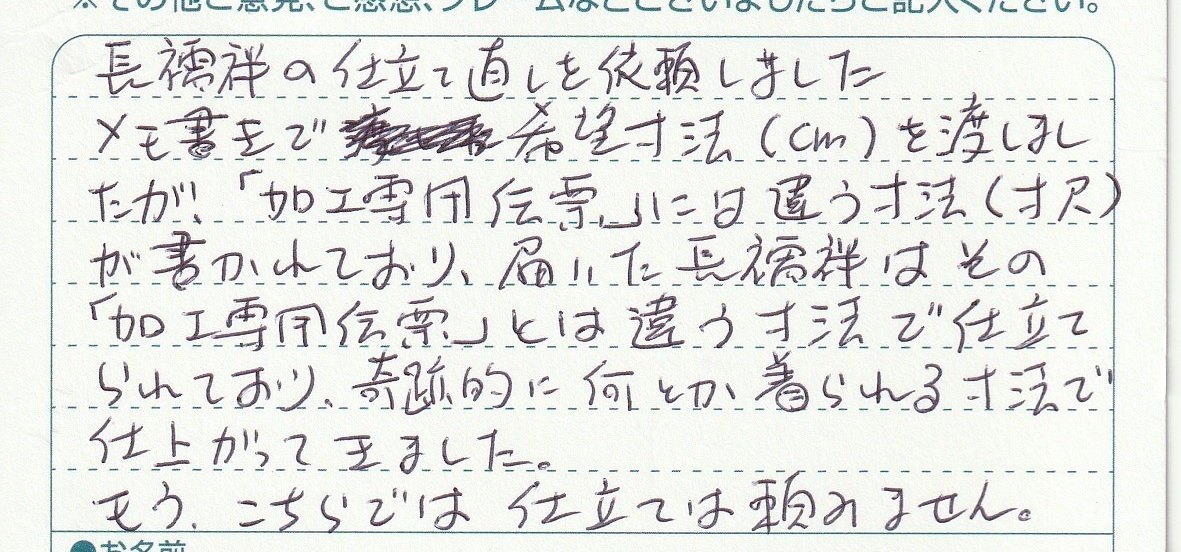 ※その他ご意見、ご感想、クレームなどございましたらご記入ください。
長襦袢の仕立て直しを依頼しました
メモ書きで 希望寸法(cm)を渡しまし
たが、「加工専用伝票」には違う寸法(寸尺)
が書かれており、届いた長襦袢はその
「加工専用伝票」とは違う寸法で仕立て
られており、奇跡的に何とか着られる寸法で
仕上がってきました。
もう、こちらでは仕立ては頼みません。
●お名前